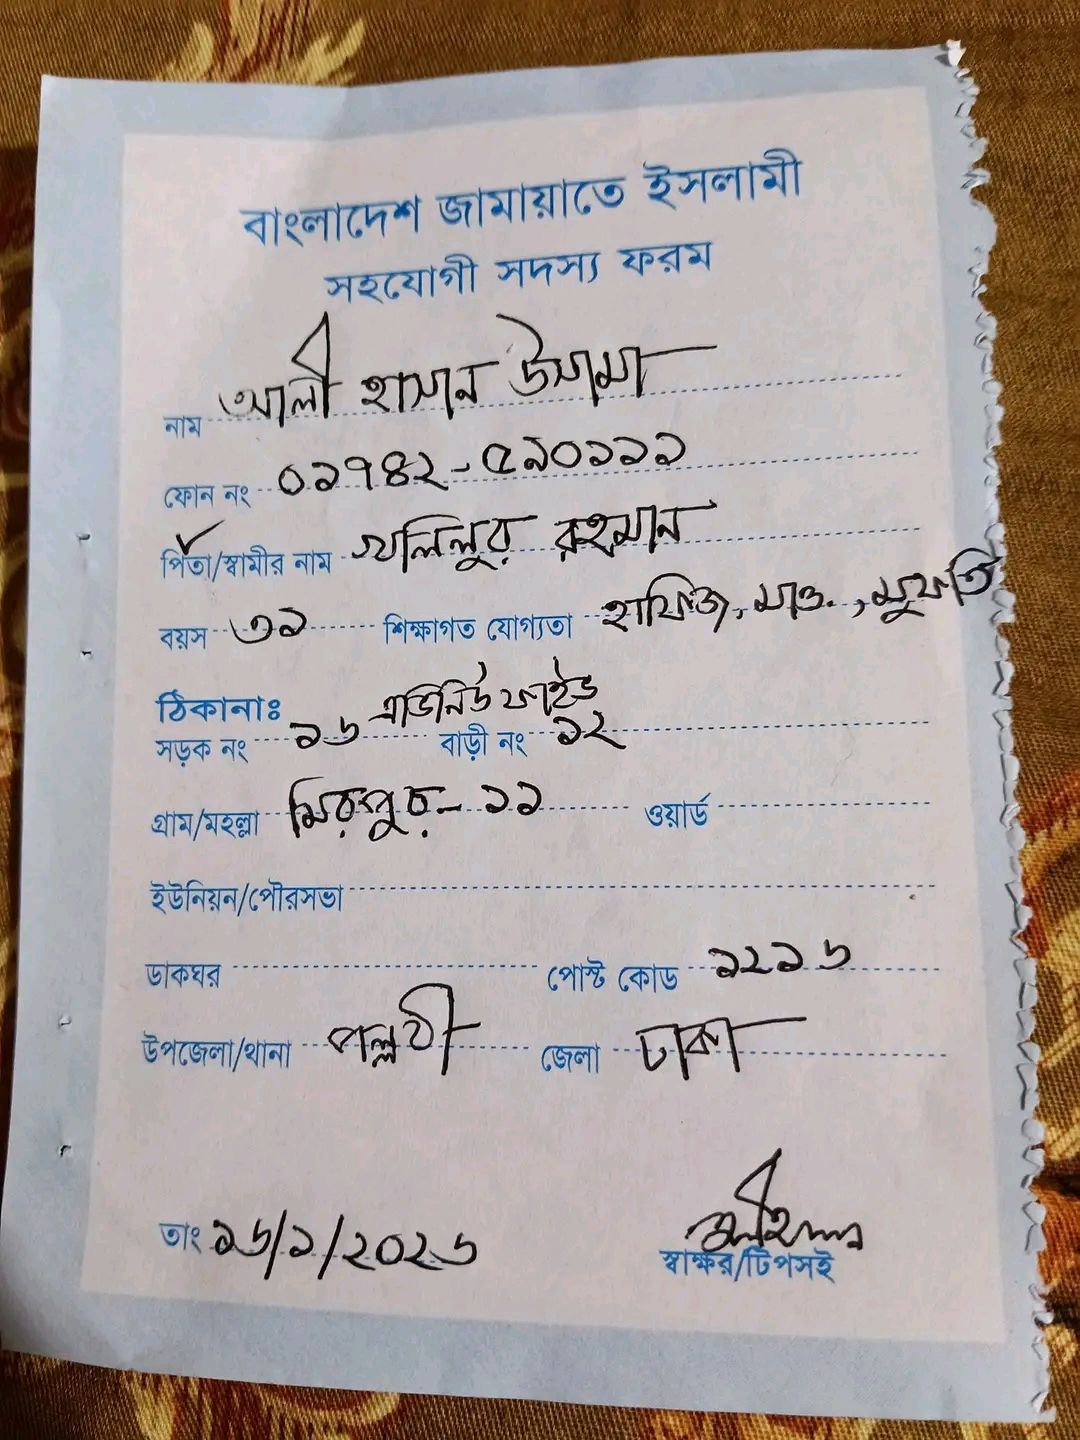 বাংলাদেশ জামায়াতে ইসলামী
সহযোগী সদস্য ফরম
নাম আলী হাসান উসামা
ফোন নং ০১৭৪২-৫৯০১১১
পিতা/স্বামীর নাম খলিলুর রহমান
বয়স ৩১ শিক্ষাগত যোগ্যতা হাফিজ, মাও., মুফতি
ঠিকানাঃ এভিনিউ ফাইভ
সড়ক নং ১৬ বাড়ী নং ১২
গ্রাম/মহল্লা মিরপুর-১১ ওয়ার্ড
ইউনিয়ন/পৌরসভা
ডাকঘর পোস্ট কোড ১২১৬
উপজেলা/থানা পল্লবী জেলা ঢাকা
তাং ১৬/১/২০২৬
স্বাক্ষর/টিপসই